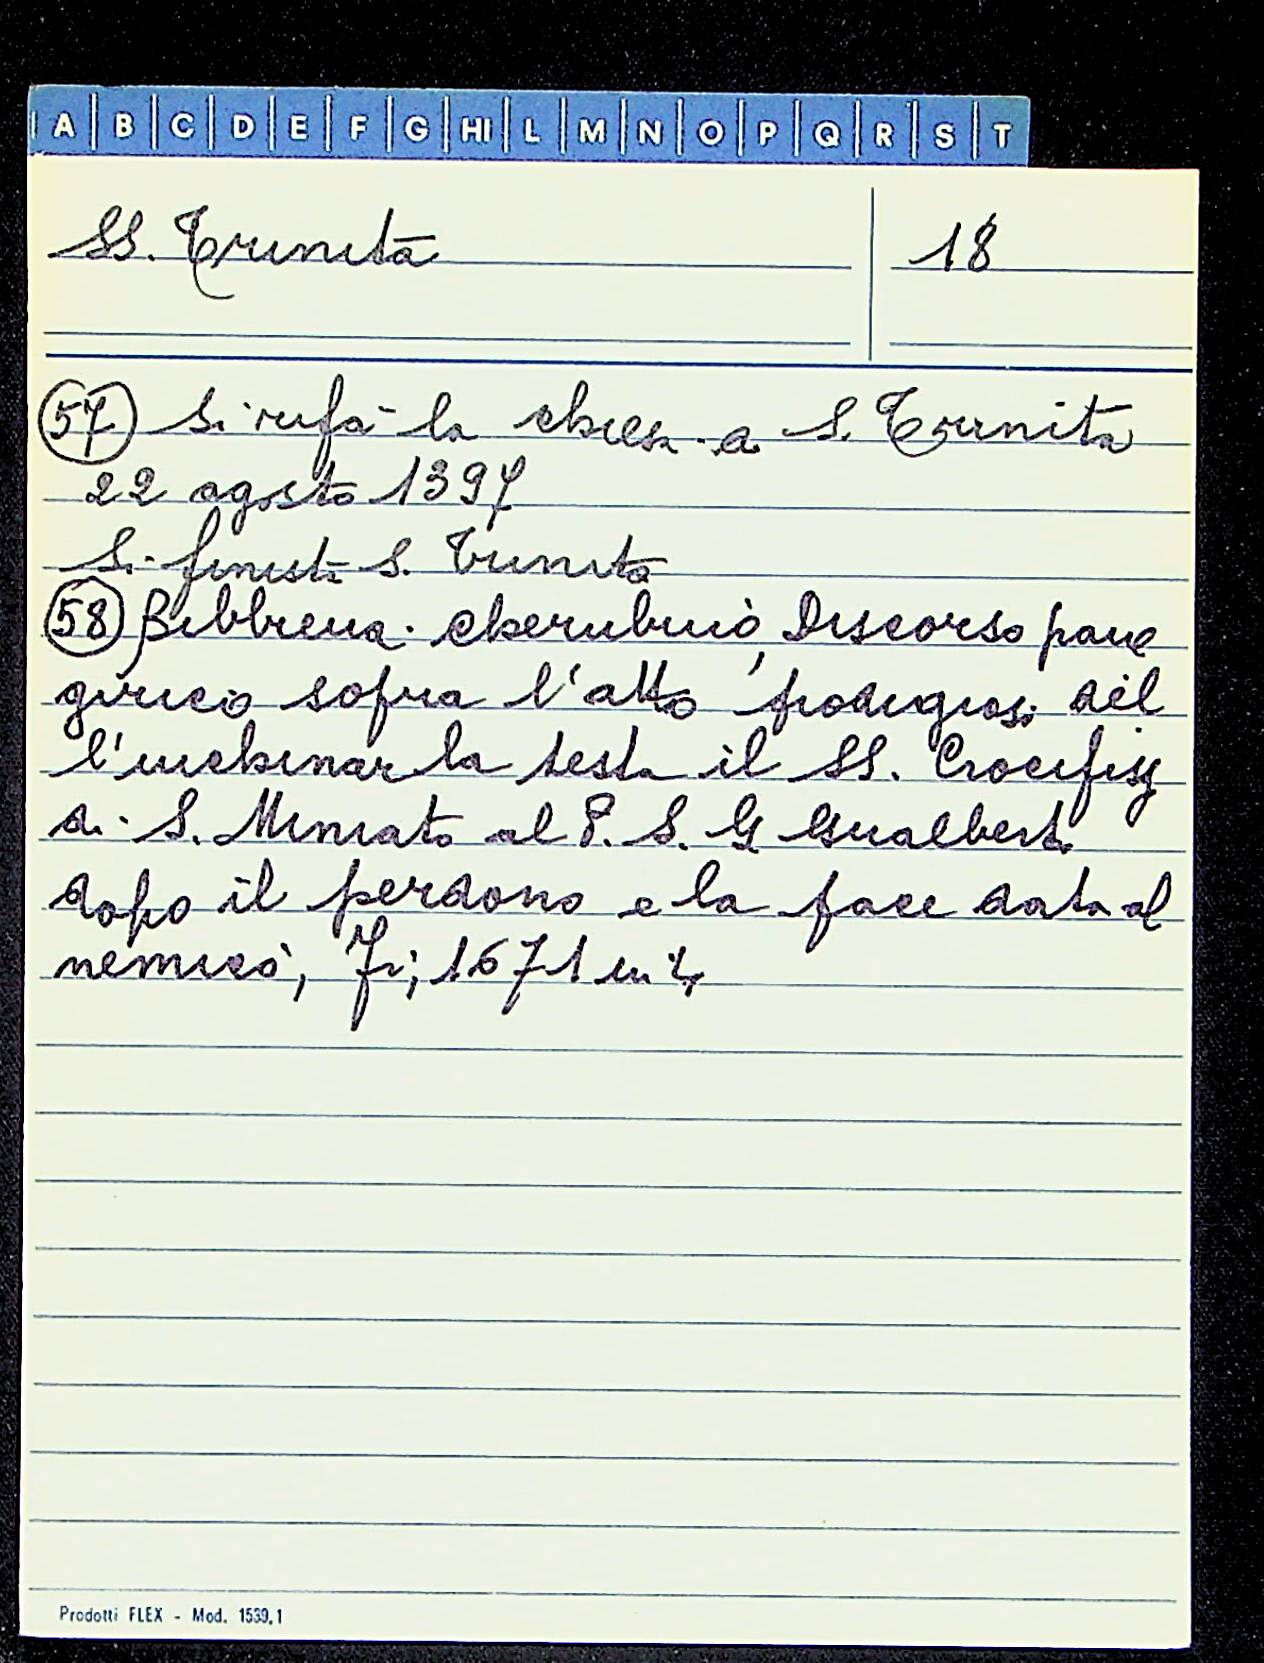 A B C D E F G HI L M N O P Q R S T
SS. Trinità 18
57 Si rifà la chiesa a S. Trinita
22 agosto 1397
Si finisti S. Trinita
58 Bibbiena Cherubino, Discorso pane
girico sopra l'atto prodigioso del
l'inchinar la testa il SS. Crocifisso
di S. Miniato al P. S. G Gualberto
dopo il perdono e la pace data al
nemico, Fi; 1671 in 4
Prodotti FLEX - Mod. 1539,1